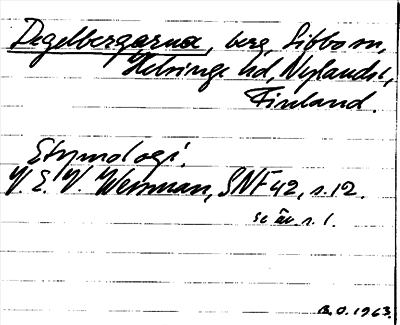 Degelbergarna, berg, Sibbo sn,
Helsinge hd, Nylands l,
Finland.
Etymologi.
V. E. V. Wessman, SNF 42, s. 12.
se äv. s. 1.
B.O. 1963.